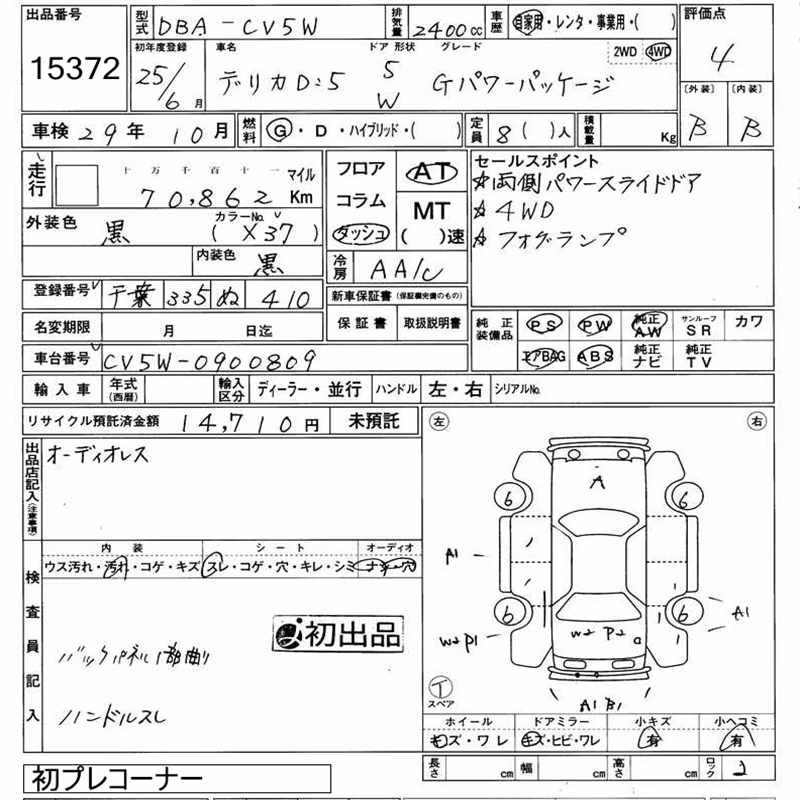 出品番号 型式 DBA-CV5W 排気量 2400cc 車歴 自家用・レンタ・事業用・( ) 評価点
15372 4
初年度登録 車名 ドア 形状 グレード 2WD 4WD
25/6月 デリカD:5 5 W Gパワーパッケージ
[外装] [内装]
B B
車検 29年 10月 燃料 G・D・ハイブリッド・( ) 定員 8( )人 積載量 Kg
走行 十万千百十一 マイル
70,862 Km
フロア コラム ダッシュ
AT
MT
( )速
セールスポイント
☆両側パワースライドドア
☆4WD
☆フォグランプ
外装色 黒 カラーNo.
(X37)
内装色 黒
冷房 AA/C
登録番号 千葉 335 ぬ 410
新車保証書 (保証欄完備のもの)
名変期限 月 日迄
保証書 取扱説明書
純正装備品 PS PW 純正AW サンルーフSR カワ
エアBAG ABS 純正ナビ 純正TV
車台番号 CV5W-0900809
輸入車 年式(西暦) 輸入区分 ディーラー・並行 ハンドル 左・右 シリアルNo.
リサイクル預託済金額 14,710円 未預託
出品店記入(注意事項)
オーディオレス
左 右
A
6 6
A1
6 6
A1
W2P1
W2 P2
A1 B1
T
スペア
検査員記入
内装 シート オーディオ
ウス汚れ・汚れ・コゲ・キズ スレ・コゲ・穴・キレ・シミ ナシ・穴
初出品
バックパネル1部曲り
ハンドルスレ
ホイール ドアミラー 小キズ 小ヘコミ
キズ・ワレ キズ・ヒビ・ワレ 有 有
長さ cm 幅 cm 高さ cm ロック 2
初プレコーナー